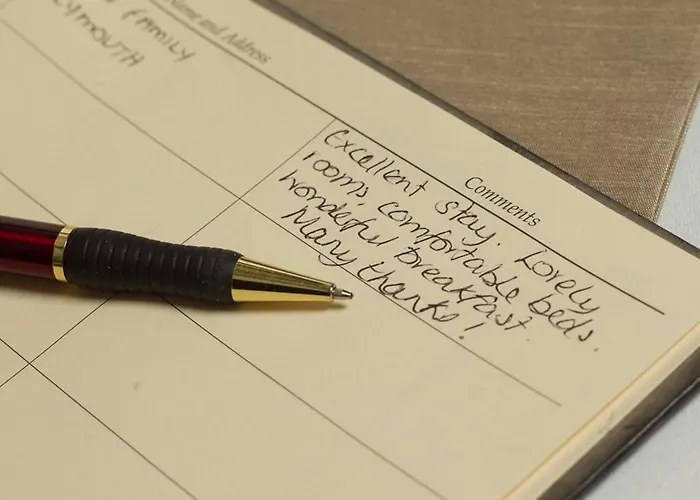 Name and Address
FAMILY
Comments
Excellent stay. Lovely
rooms, comfortable beds.
Wonderful breakfast.
Many thanks!